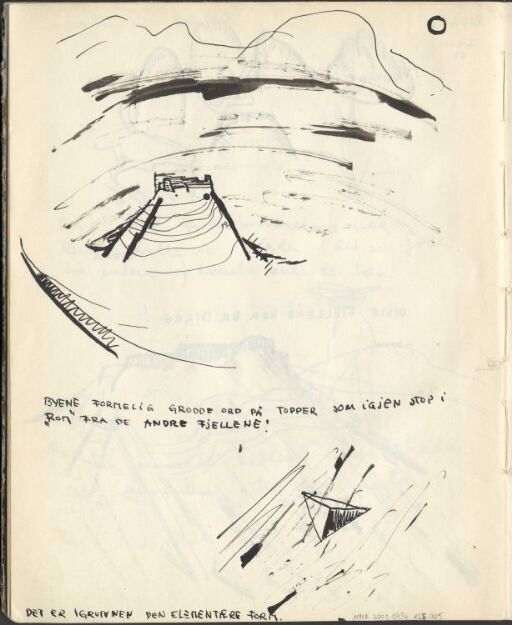 BYENE FORMELIG GRODDE OPP PÅ TOPPER SOM IGJEN STOD I
"ROM" FRA DE ANDRE FJELLENE!
DET ER IGRUNNEN DEN ELEMENTÆRE FORM.